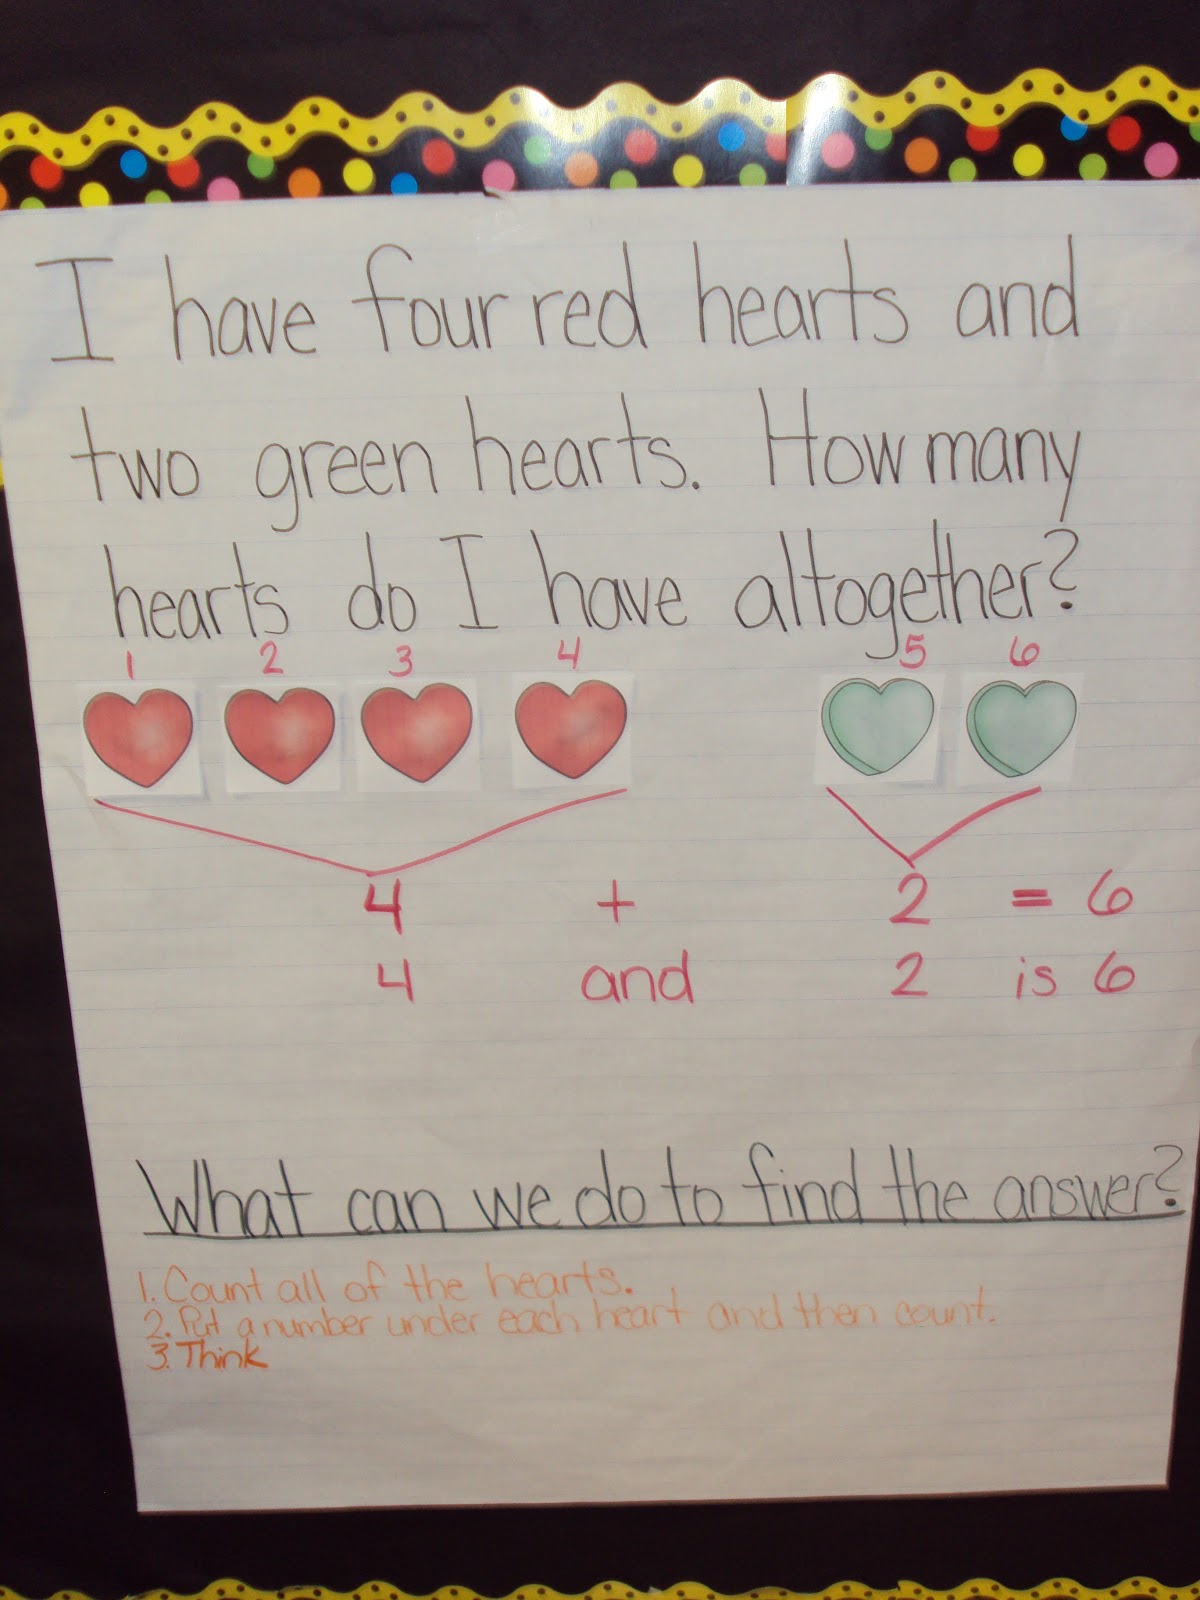 I have four red hearts and
two green hearts. How many
hearts do I have altogether?
1 2 3 4 5 6
4 + 2 = 6
4 and 2 is 6
What can we do to find the answer?
1. Count all of the hearts.
2. Put a number under each heart and then count.
3. Think